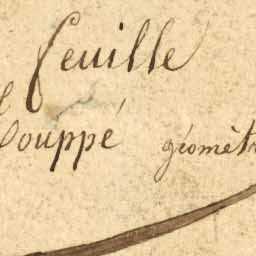 feuille
Couppé géomèt